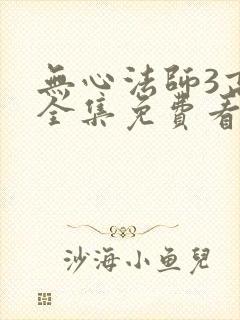 無心法師3
全集免費看
沙海小鱼兒